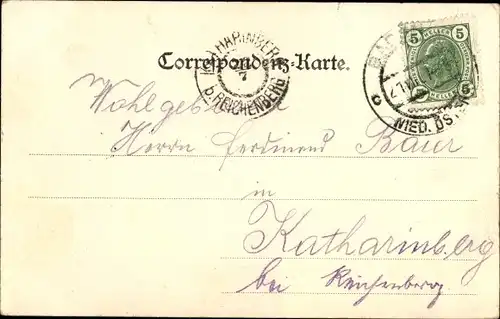 Correspondenz-Karte.
KATHARINBERG
7
b. REICHENBERG
5 HELLER 5
NIED. ÖST.
Wohlgeboren
Herrn Ferdinand Baur
in
Katharinberg
bei Reichenberg